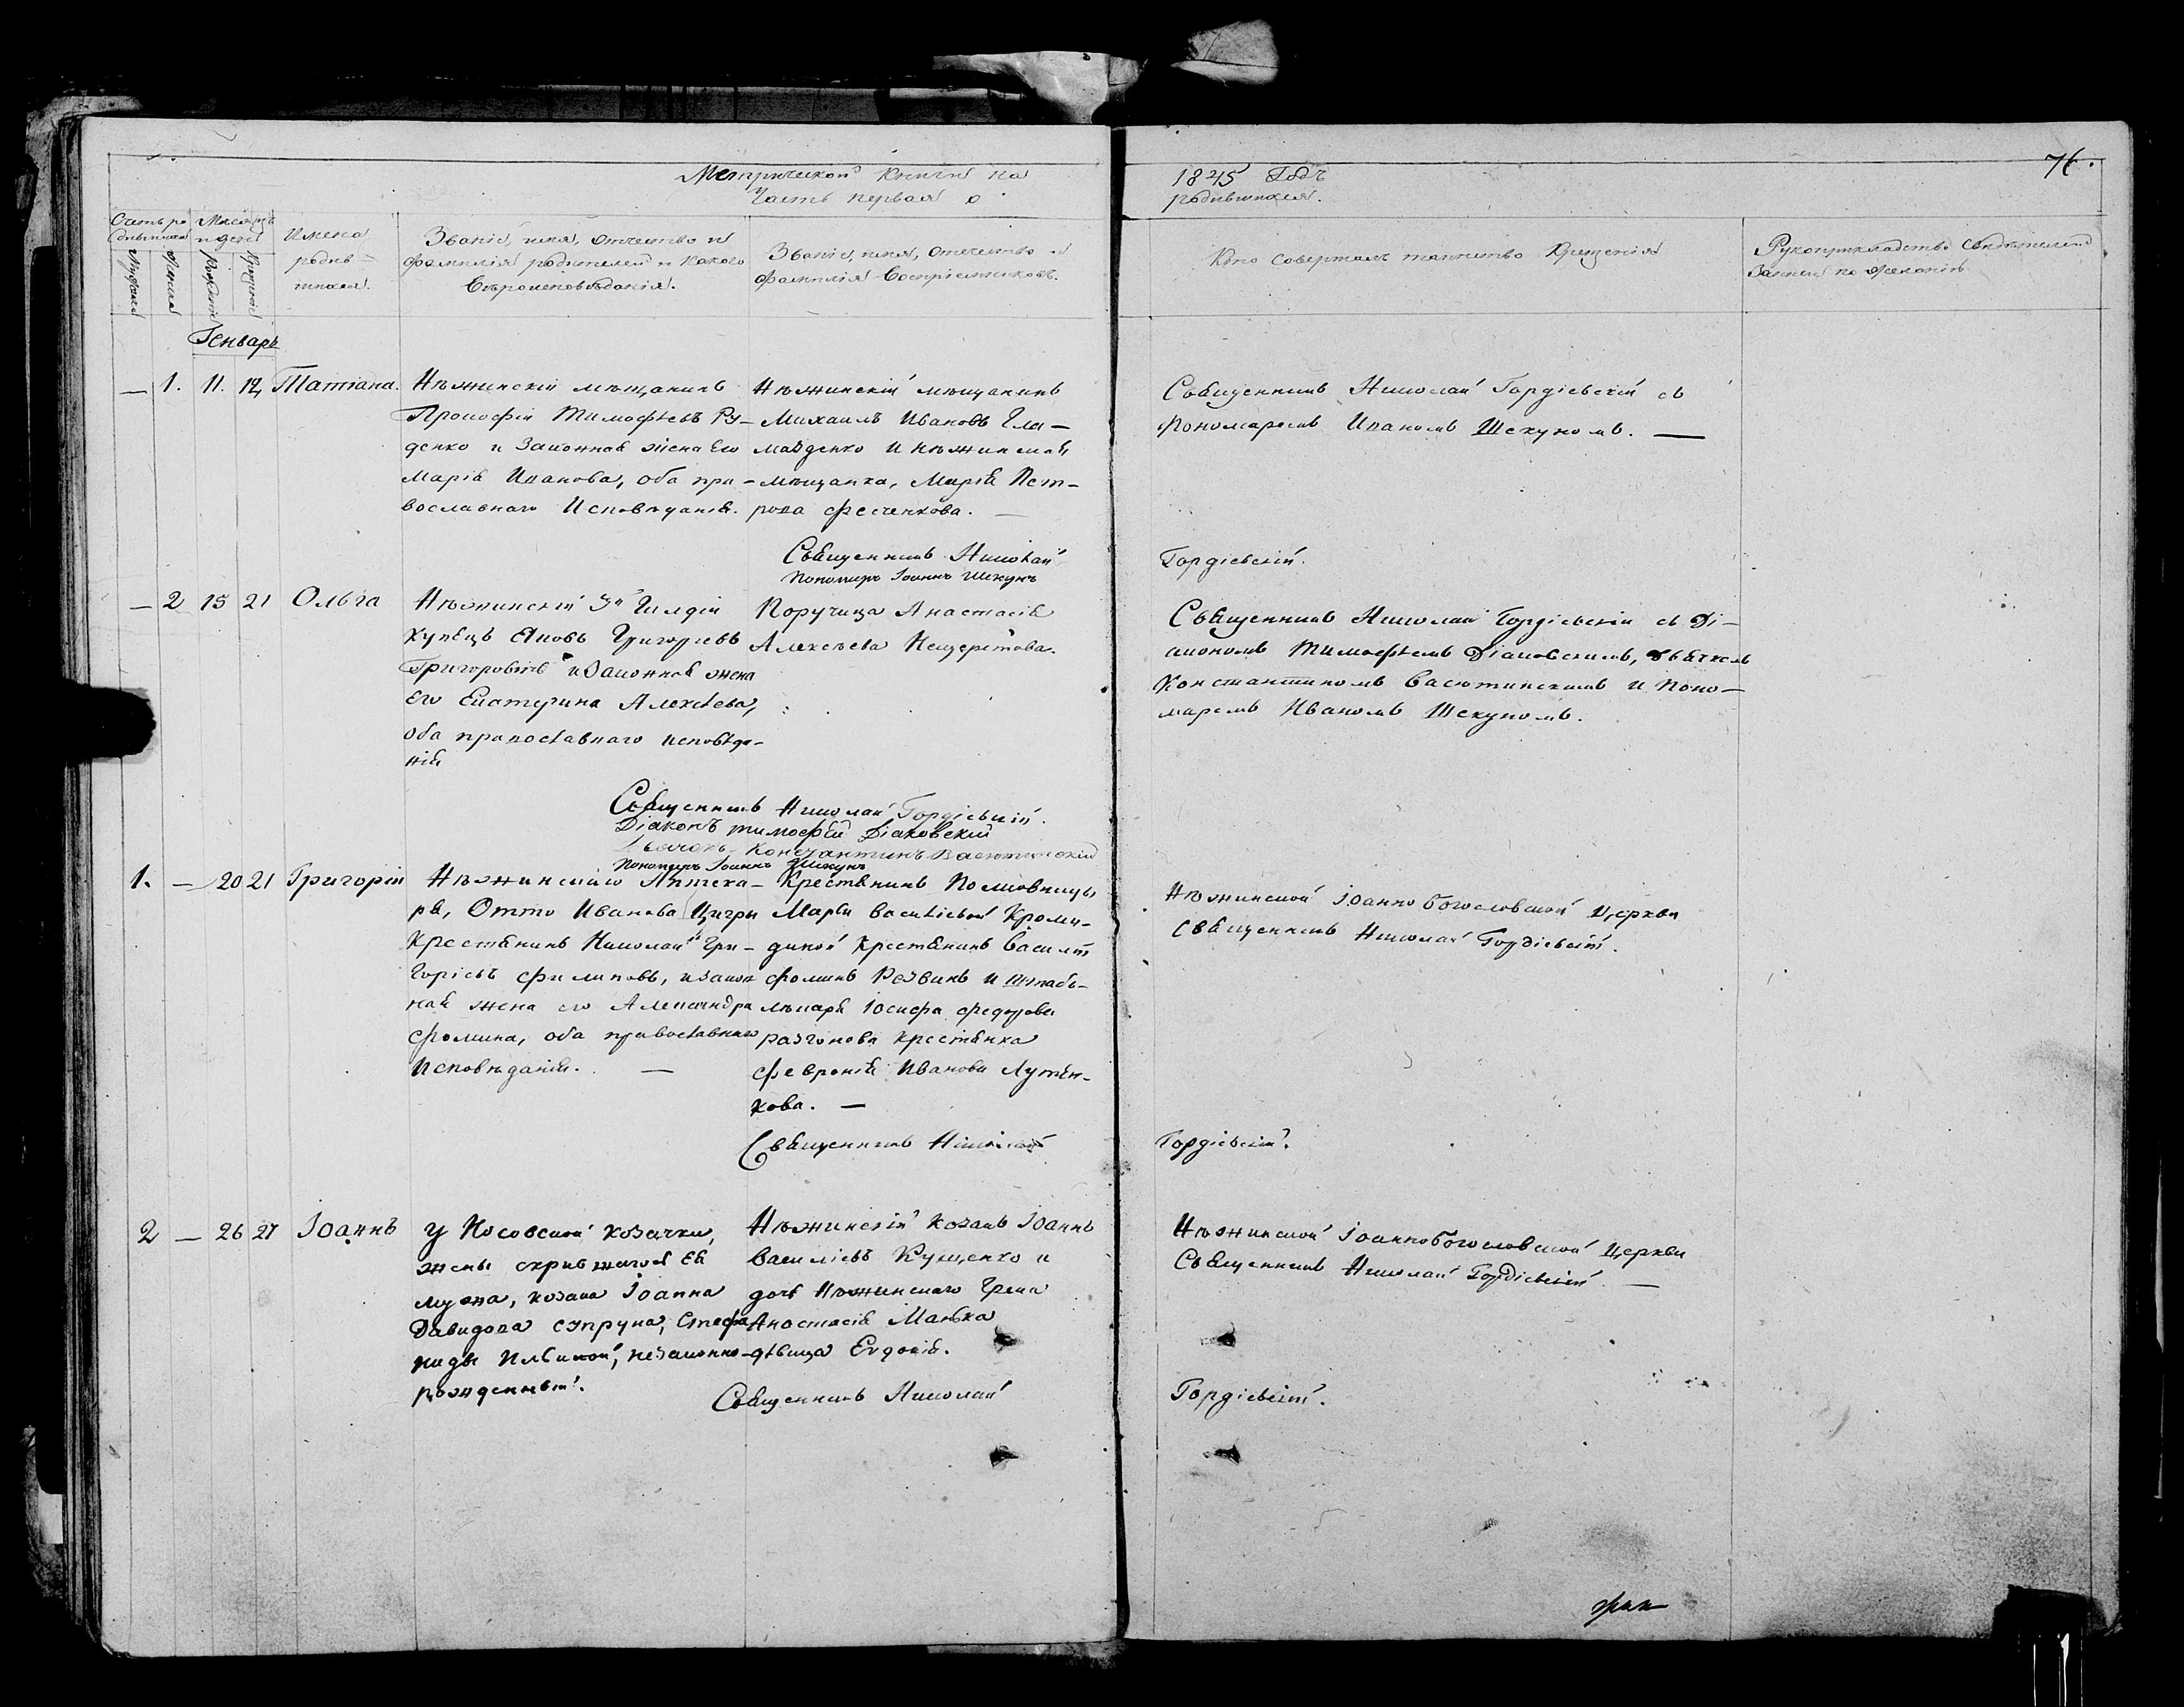 Метрической Книги на 1845 Годъ
Часть первая о родившихся.
76.
Счетъ ро
дившихся
Мужеска
Женска
Месяцъ
и день
Рожденія
Крещенія
Имена
родив-
шихся.
Званіе, имя, отчество и
фамилія родителей и какого
Вѣроисповѣданія.
Званіе, имя, отчество и
фамилія Воспріемниковъ.
Кто совершалъ таинство Крещенія
Рукоприкладство свидѣтелей
записи по желанію
Генварь
— 1. 11. 12 Татіана.
Нѣжинскій мѣщанинъ
Прокофій Тимофѣевъ Ру-
денко и Законная жена Его
Марія Иванова, оба пра-
вославнаго Исповѣданія.
Нѣжинскій мѣщанинъ
Михаилъ Ивановъ Гла-
мазденко и нѣжинская
мѣщанка, Марія Пет-
рова Фесченкова. —
Священникъ Николай Гордіевскій съ
Пономаремъ Иваномъ Шекуномъ. —
Священникъ Николай Гордіевскій.
Пономарь Іоаннъ Шекунъ
— 2 15 21 Ольга
Нѣжинскій 3й Гилдіи
купецъ Яковъ Григорьевъ
Григоровичъ и Законная жена
Его Екатерина Алексѣева,
оба православнаго исповѣда-
нія
Поручица Анастасія
Алексѣева Нещеретова.
Священникъ Николай Гордіевскій съ Ді-
акономъ Тимофѣемъ Діаковскимъ, дьячкомъ
Константиномъ Васютинскимъ и Поно-
маремъ Иваномъ Шекуномъ.
Священникъ Николай Гордіевскій.
Діаконъ Тимофѣй Діаковскій
Дьячокъ Константинъ Васютинскій
Пономарь Іоаннъ Шекунъ
1. — 20 21 Григорій
Нѣжинскаго Аптека-
ря, Отто Иванова Цигры
Крестьянинъ Николай Гри-
горіевъ Филиповъ, и закон
ная жена его Александра
Фомина, оба православнаго
Исповѣданія. —
Крестьянинъ Полковницы
Марьи Василіевой Кроми-
диной Крестьянинъ Василій
Фоминъ Резвинъ и Штабъ-
лѣкаря Іосифа Федорова
Разгонова крестьянка
Февронія Иванова Лутен-
кова. —
Нѣжинской Іоанно Богословской Церкви
Священникъ Николай Гордіевскій.
Священникъ Николай Гордіевскій.
2 — 26 27 Іоаннъ
У Носовской козачки,
жены скрывшагося Ея
мужа, козака Іоанна
Давидова Супруна, Стефа
ниды Ильиной, незаконно-
рожденный.
Нѣжинскій козакъ Іоаннъ
Василіевъ Кущенко и
дочь Нѣжинскаго Грека
Анастасія Манька
дѣвица Евдокія.
Нѣжинской Іоаннобогословской Церкви
Священникъ Николай Гордіевскій —
Священникъ Николай Гордіевскій.